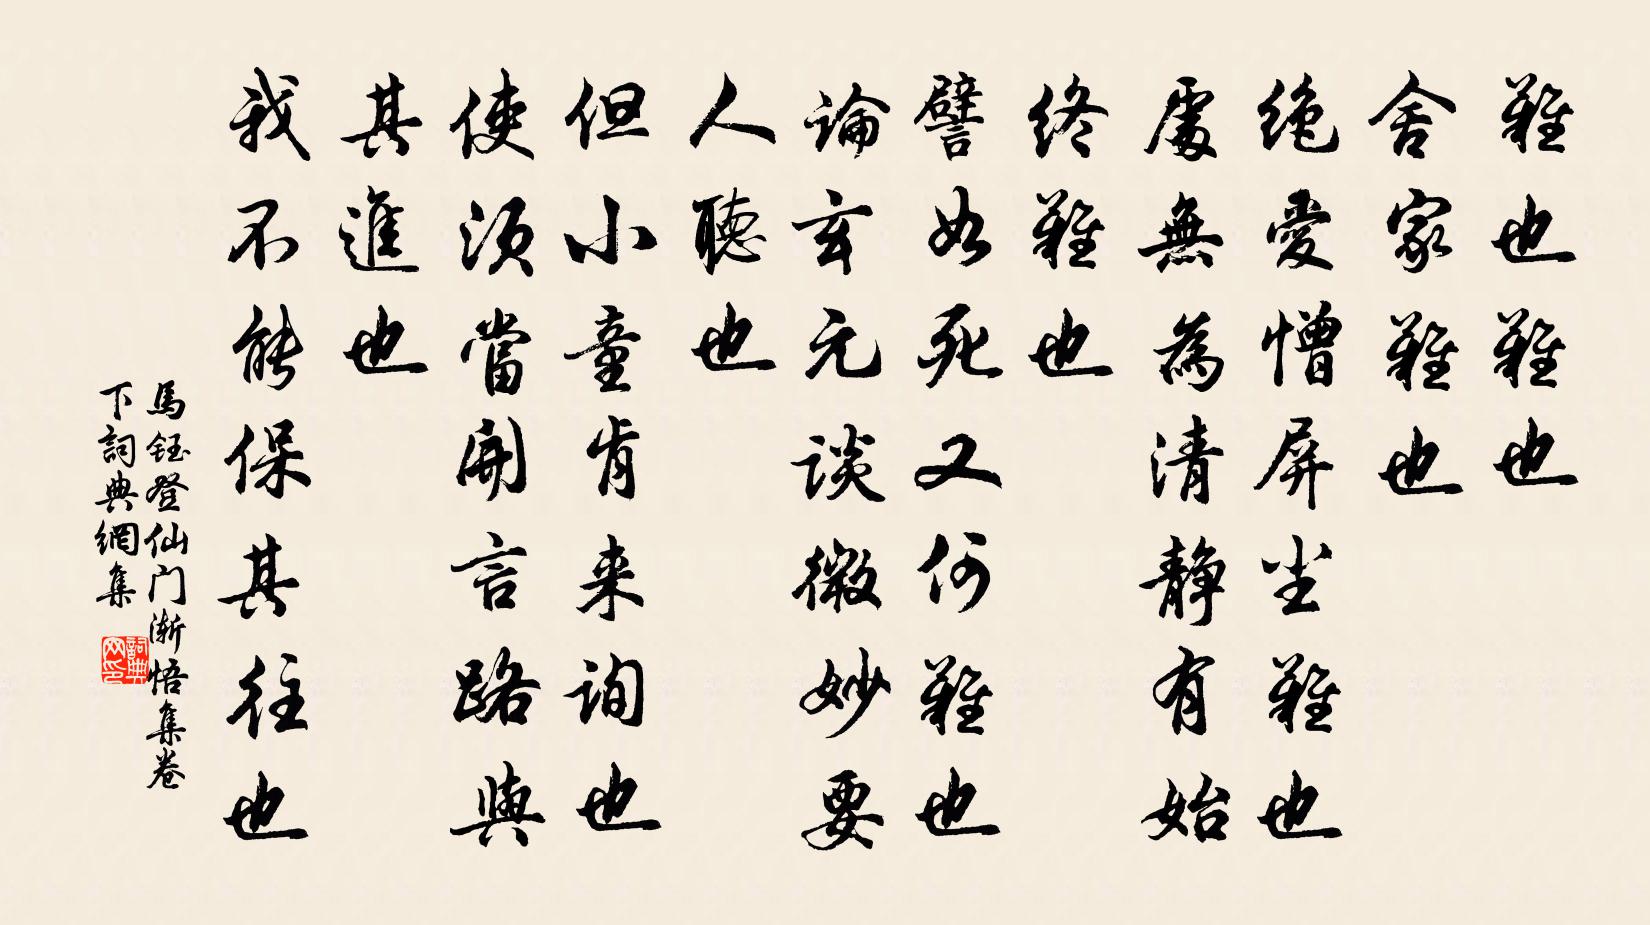 難也難也
舍家難也
绝愛憎屏尘難也
處無為清静有始
终難也
譬如死又何難也
論玄元谈微妙要
人聽也
但小童肯来询也
使须當開言路與
其進也
我不能保其往也
馬鈺登仙门渐悟集卷
下詞典網集
詞典网印